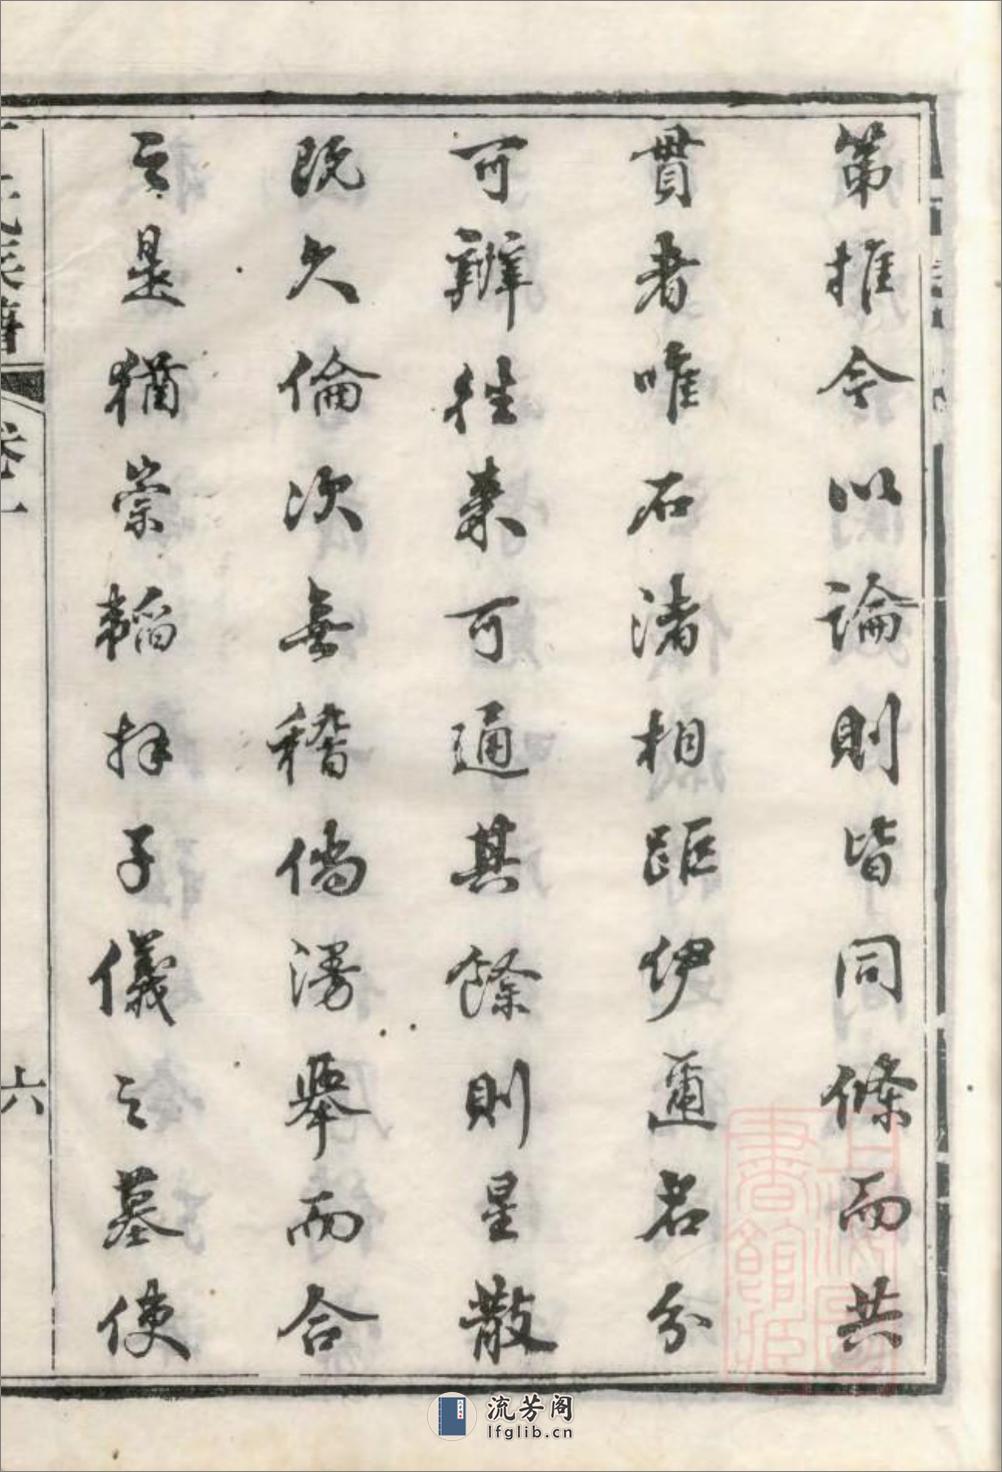 第推今以論則皆同條而共
貫者唯石渚相距伊邇名分
可辦往来可通其餘則星散
既久倫次無稽倘漫舉而合
之是猶崇韜拜子儀之墓使
卷一
六
流芳阁
lfglib.cn